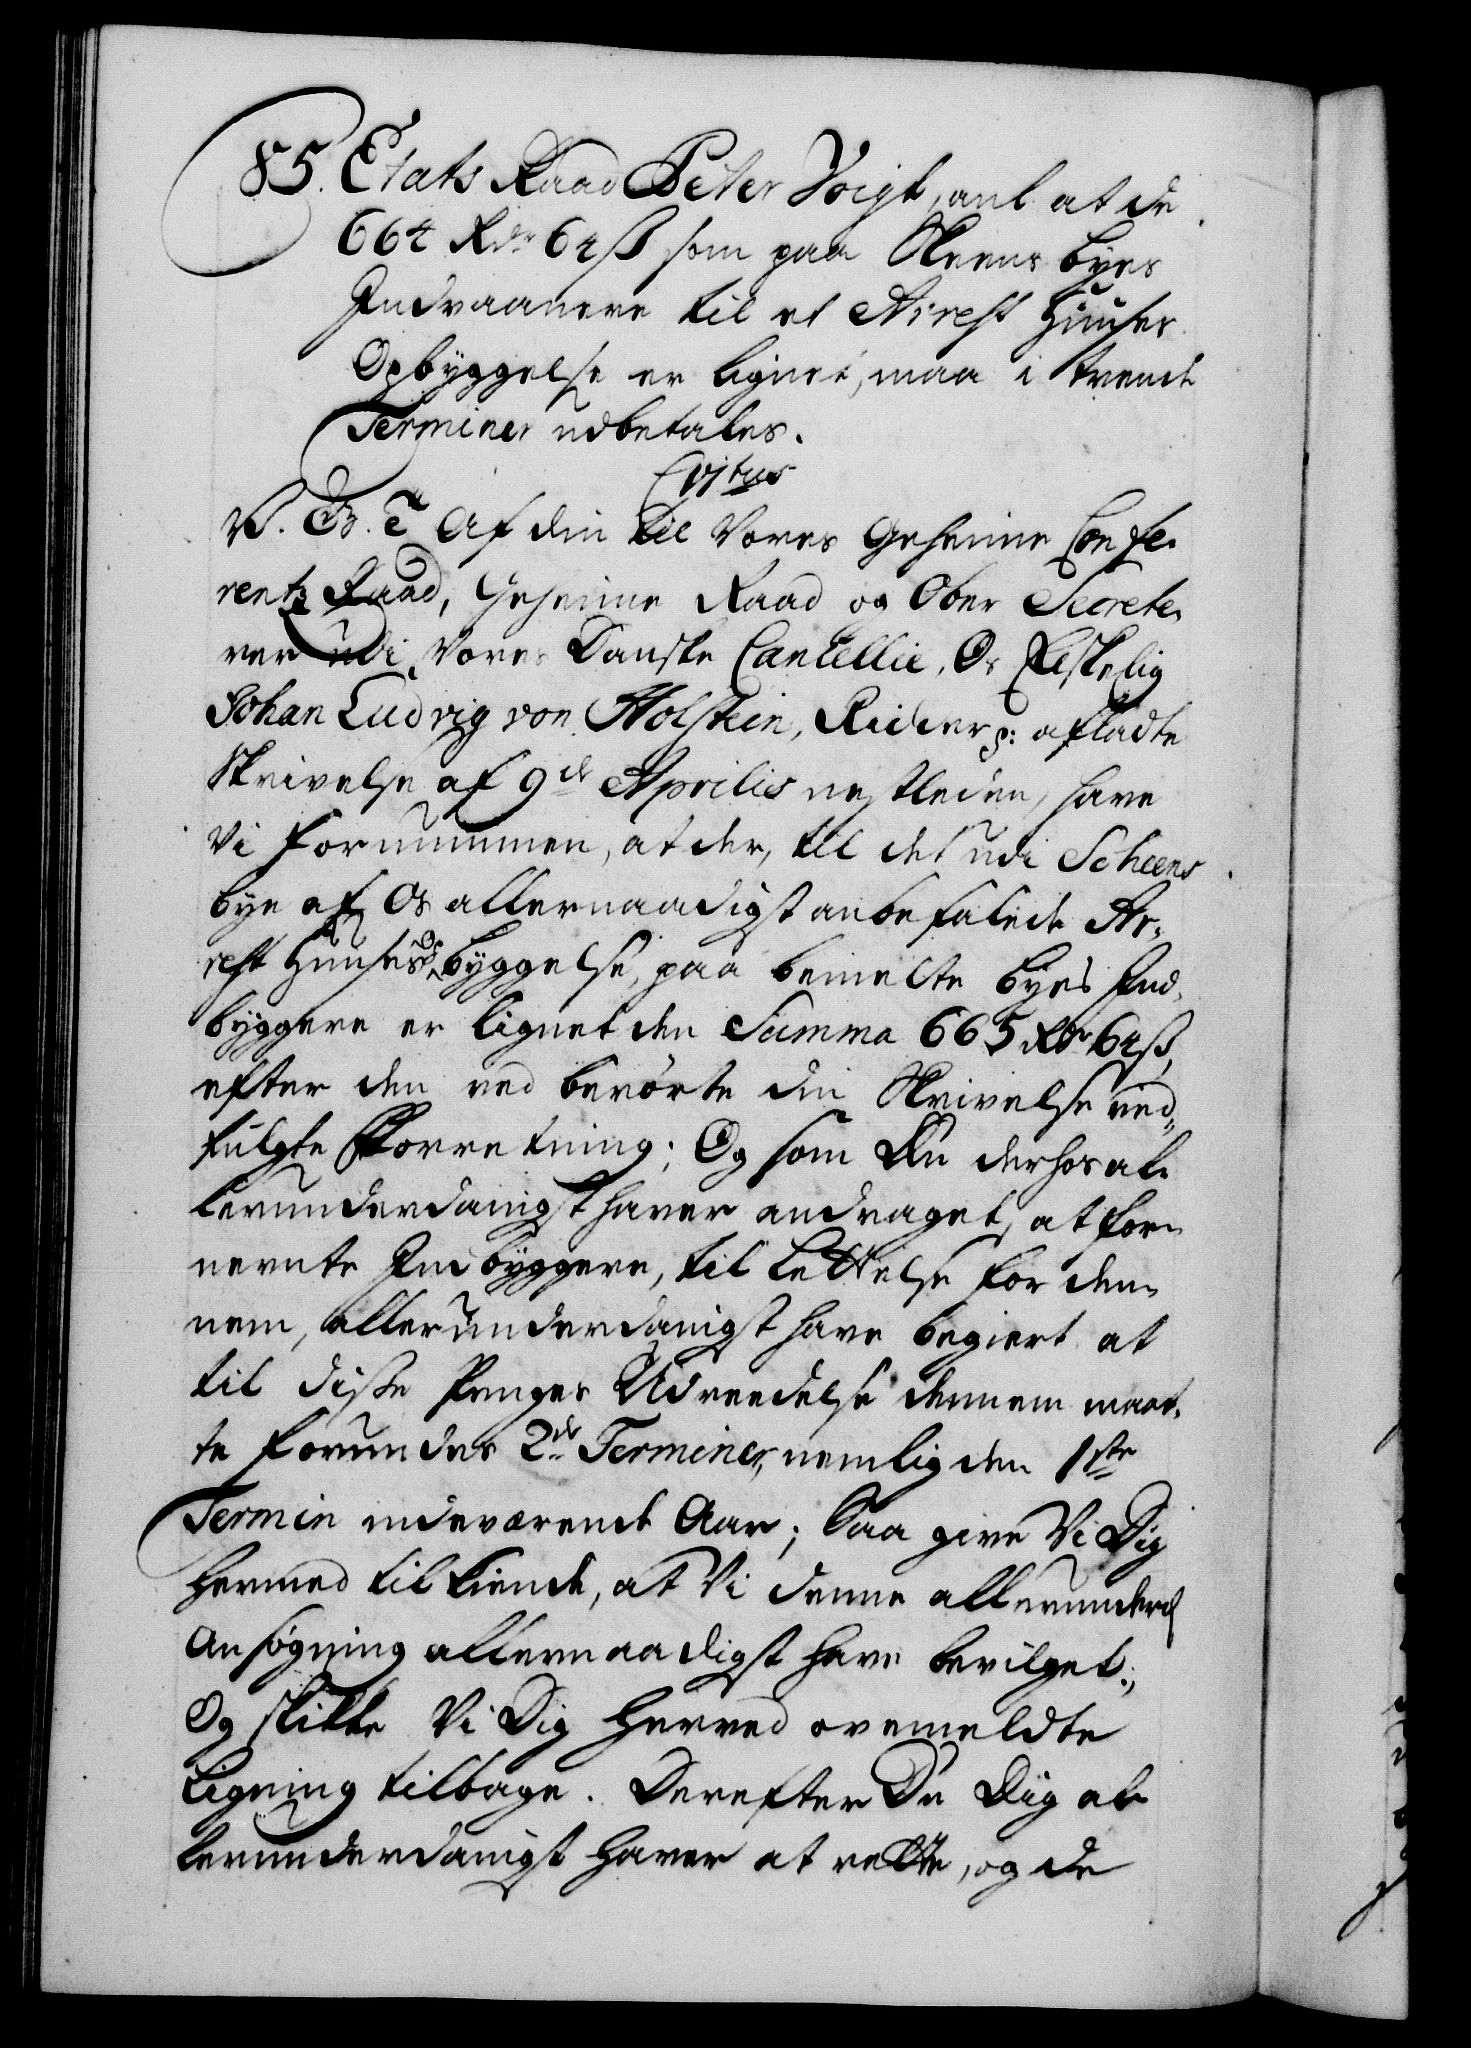 85. Etats Raad Peter Voigt, anl at de
664 Rdr 64ß som paa Skeens byes
Indvaanere til et Arrest Huuses
Opbyggelse er lignet, maa i tvende
Terminer udbetales.
C Vjtus
V. G. T. Af din til Vores Geheime Confe-
rentz Raad, Geheime Raad og Ober Secrete-
rer udi Vores Danske Cancellie, Os Elskelig
Johan Ludvig von Holstein, Ridder p: afladte
Skrivelse af 9de Aprilis nestleden, have
Vi fornummen, at der, til det udi Scheens
bye af Os allernaadigst anbefalede Ar-
rest Huuses Opbyggelse, paa bemelte byes Ind-
byggere er lignet den Summa 665 Rdr 64ß,
efter den ved berørte din Skrivelse ved-
fulgte Forretning; Og som Du derhos al-
lerunderdanigst haver andraget, at for-
nevnte Indbyggere, til Lettelse for den-
nem, allerunderdanigst have begiert at
til disse Penges Udreedelse dennem maat-
te forundes 2de Terminer, nemlig den 1ste
Termin indeværende Aar; Saa give Vi Dig
hermed tilkiende, at Vi denne allerunderd
Ansøgning allernaadigst have bevilget;
Og skikke Vi Dig herved ovenmeldte
Ligning tilbage. Derefter Du Dig al-
lerunderdanigst haver at rette, og de